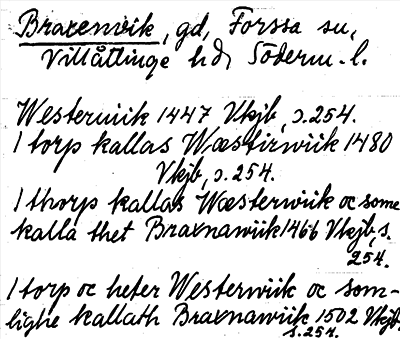 Braxenvik, gd, Forssa sn,
Villåttinge hd, Söderm. l.
Westerwiik 1447 Vkjb, s. 254.
1 torp kallas Wæstirwiik 1480
Vkjb, s. 254.
1 thorp kallas Wæsterwiik oc some
kalla thet Braxnawiik 1466 Vkjb, s.
254.
1 torp oc heter Westerwiik oc som-
lighe kallath Braxnawiik 1502 Vkjb.
s. 254.